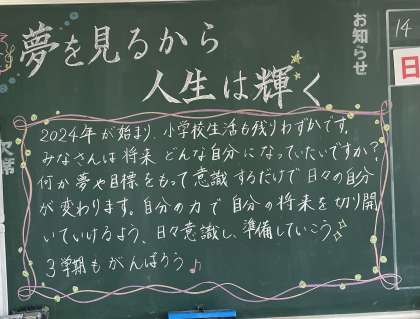 夢を見るから
人生は輝く
お知らせ
14
日
欠席
2024年が始まり、小学校生活も残りわずかです。
みなさんは将来どんな自分になっていたいですか?
何か夢や目標をもって意識するだけで日々の自分
が変わります。自分の力で自分の将来を切り開
いていけるよう、日々意識し、準備していこう
3学期もがんばろう♪